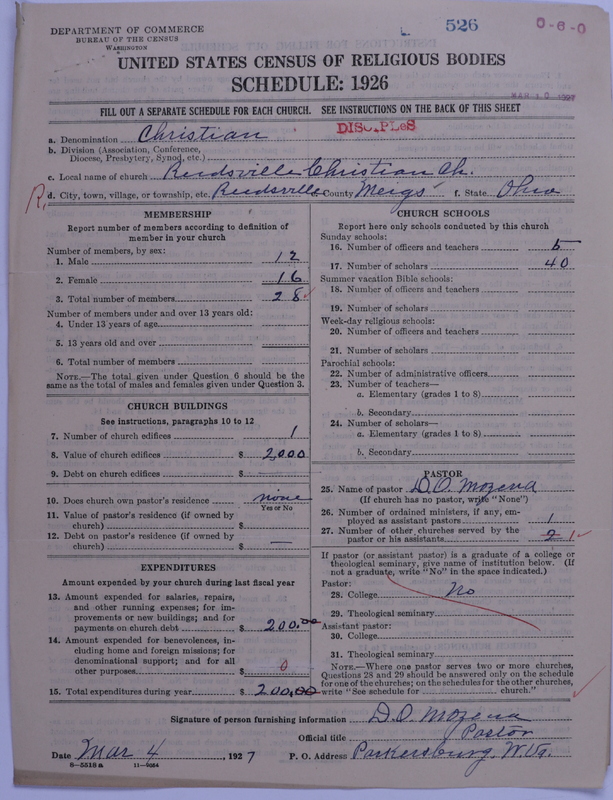 DEPARTMENT OF COMMERCE
BUREAU OF THE CENSUS
WASHINGTON
526
0-6-0
UNITED STATES CENSUS OF RELIGIOUS BODIES
SCHEDULE: 1926
MAR 10 1927
FILL OUT A SEPARATE SCHEDULE FOR EACH CHURCH. SEE INSTRUCTIONS ON THE BACK OF THIS SHEET
a. Denomination Christian DISCIPLES
b. Division (Association, Conference, Diocese, Presbytery, Synod, etc.)
c. Local name of church Reedsville Christian Ch.
R. d. City, town, village, or township, etc. Reedsville e. County Meigs f. State Ohio
MEMBERSHIP
Report number of members according to definition of member in your church
Number of members, by sex:
1. Male 12
2. Female 16
3. Total number of members 28
Number of members under and over 13 years old:
4. Under 13 years of age
5. 13 years old and over
6. Total number of members
NOTE.—The total given under Question 6 should be the same as the total of males and females given under Question 3.
CHURCH BUILDINGS
See instructions, paragraphs 10 to 12
7. Number of church edifices 1
8. Value of church edifices $ 2,000
9. Debt on church edifices $
10. Does church own pastor's residence none
Yes or No
11. Value of pastor's residence (if owned by church) $
12. Debt on pastor's residence (if owned by church) $
EXPENDITURES
Amount expended by your church during last fiscal year
13. Amount expended for salaries, repairs, and other running expenses; for improvements or new buildings; and for payments on church debt $ 200.00
14. Amount expended for benevolences, including home and foreign missions; for denominational support; and for all other purposes $ 0
15. Total expenditures during year $ 200.00
CHURCH SCHOOLS
Report here only schools conducted by this church
Sunday schools:
16. Number of officers and teachers 5
17. Number of scholars 40
Summer vacation Bible schools:
18. Number of officers and teachers
19. Number of scholars
Week-day religious schools:
20. Number of officers and teachers
21. Number of scholars
Parochial schools:
22. Number of administrative officers
23. Number of teachers—
a. Elementary (grades 1 to 8)
b. Secondary
24. Number of scholars—
a. Elementary (grades 1 to 8)
b. Secondary
PASTOR
25. Name of pastor D.O. Mozena
(If church has no pastor, write "None")
26. Number of ordained ministers, if any, employed as assistant pastors 1
27. Number of other churches served by the pastor or his assistants 2 1
If pastor (or assistant pastor) is a graduate of a college or theological seminary, give name of institution below. (If not a graduate, write "No" in the space indicated.)
Pastor:
28. College No
29. Theological seminary
Assistant pastor:
30. College
31. Theological seminary
NOTE.—Where one pastor serves two or more churches, Questions 28 and 29 should be answered only on the schedule for one of the churches; on the schedules for the other churches, write "See schedule for church."
Signature of person furnishing information D.O. Mozena
Official title Pastor
Date Mar 4, 1927 P. O. Address Parkersburg, W.Va.
8—5518 a 11—9064